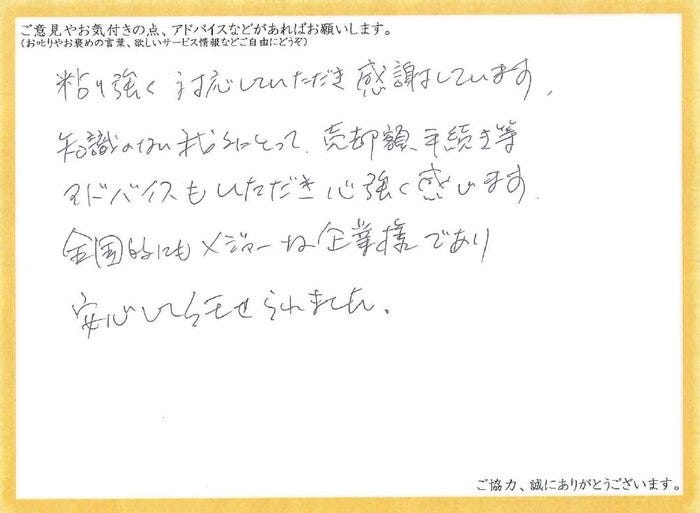 ご意見やお気付きの点、アドバイスなどがあればお願いします。
(お叱りやお褒めの言葉、欲しいサービス情報などご自由にどうぞ)
粘り強く対応していただき感謝しています。
知識のない我々にとって、売却額、手続き等
アドバイスもいただき心強く感じます。
全国的にもメジャーな企業様であり
安心して任せられました。
ご協力、誠にありがとうございます。